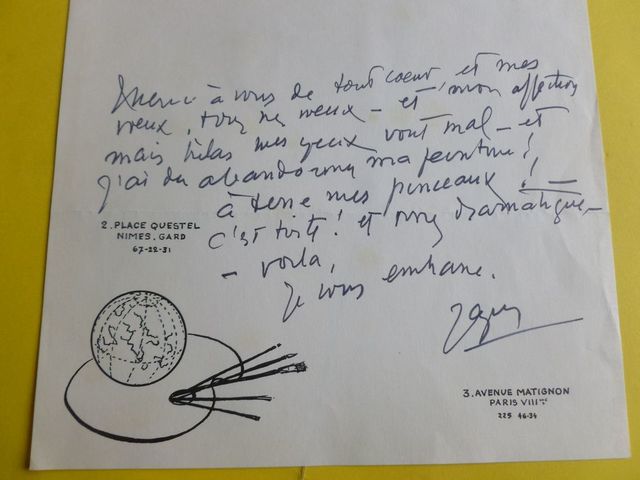 à vous de tout coeur et mes
voeux, tous mes voeux – et mon affection
mais hélas mes yeux vont mal – et
j'ai dû abandonner ma peinture!
à terre mes pinceaux! –
c'est triste! et dramatique –
– voilà,
Je vous embrasse.
2. PLACE QUESTEL
NIMES. GARD
67-22-31
3. AVENUE MATIGNON
PARIS VIIIme
225 46-34